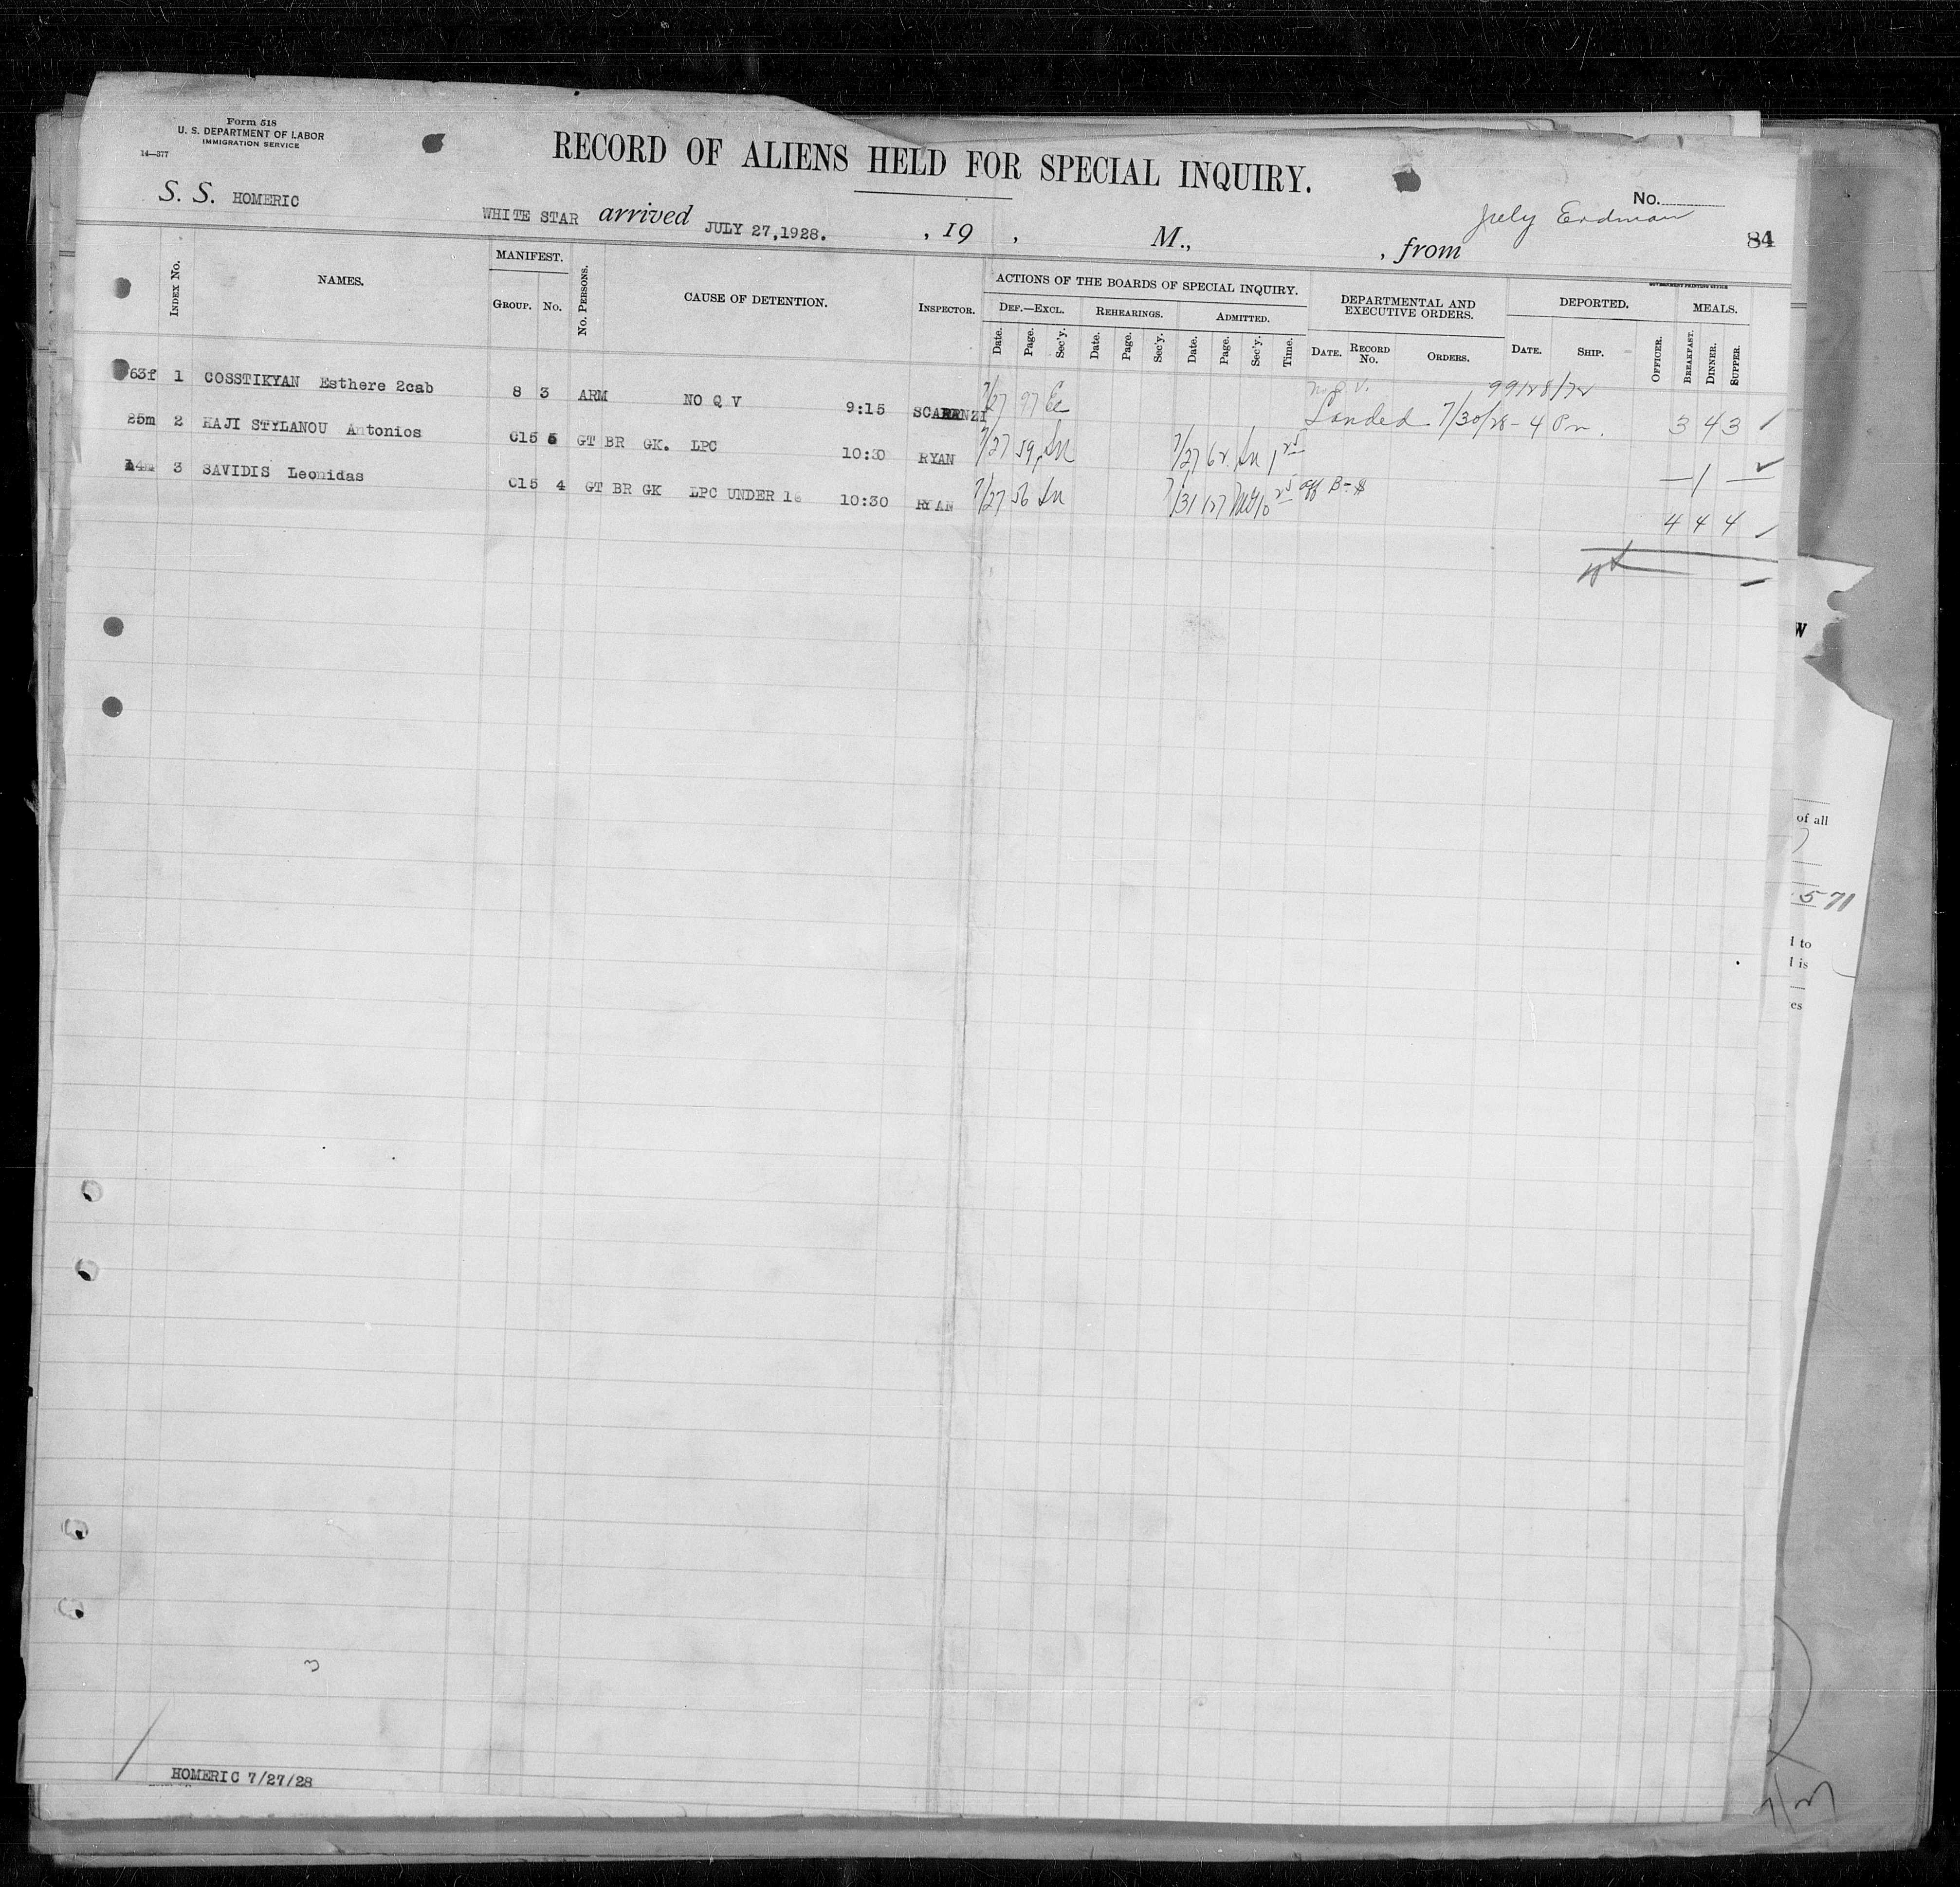 Form 518
U. S. DEPARTMENT OF LABOR
IMMIGRATION SERVICE
14—377
RECORD OF ALIENS HELD FOR SPECIAL INQUIRY.
No.
S. S. HOMERIC WHITE STAR arrived JULY 27,1928. , 19 , M., , from Erdman 84
INDEX No. NAMES. MANIFEST. GROUP. No. No. PERSONS. CAUSE OF DETENTION. INSPECTOR.
ACTIONS OF THE BOARDS OF SPECIAL INQUIRY.
DEF.—EXCL. REHEARINGS. ADMITTED.
Date. Page. Sec'y. Date. Page. Sec'y. Date. Page. Sec'y. Time.
DEPARTMENTAL AND EXECUTIVE ORDERS.
DATE. RECORD No. ORDERS.
GOVERNMENT PRINTING OFFICE
DEPORTED.
DATE. SHIP. OFFICER.
MEALS.
BREAKFAST. DINNER. SUPPER.
63f 1 COSSTIKYAN Esthere 2cab 8 3 ARM NO Q V 9:15 SCARENZI 7/27 97 Ec Landed 7/30/28 - 4 Pm. 3 4 3
25m 2 HAJI STYLANOU Antonios C15 5 GT BR GK. LPC 10:30 RYAN 7/27 59 7/27 62 1 25 — 1 —
14m 3 SAVIDIS Leonidas C15 4 GT BR GK LPC UNDER 16 10:30 RYAN 7/27 56 7/31 127 10 25 4 4 4
W
of all
571
l to
l is
es
3
HOMERIC 7/27/28
7/27